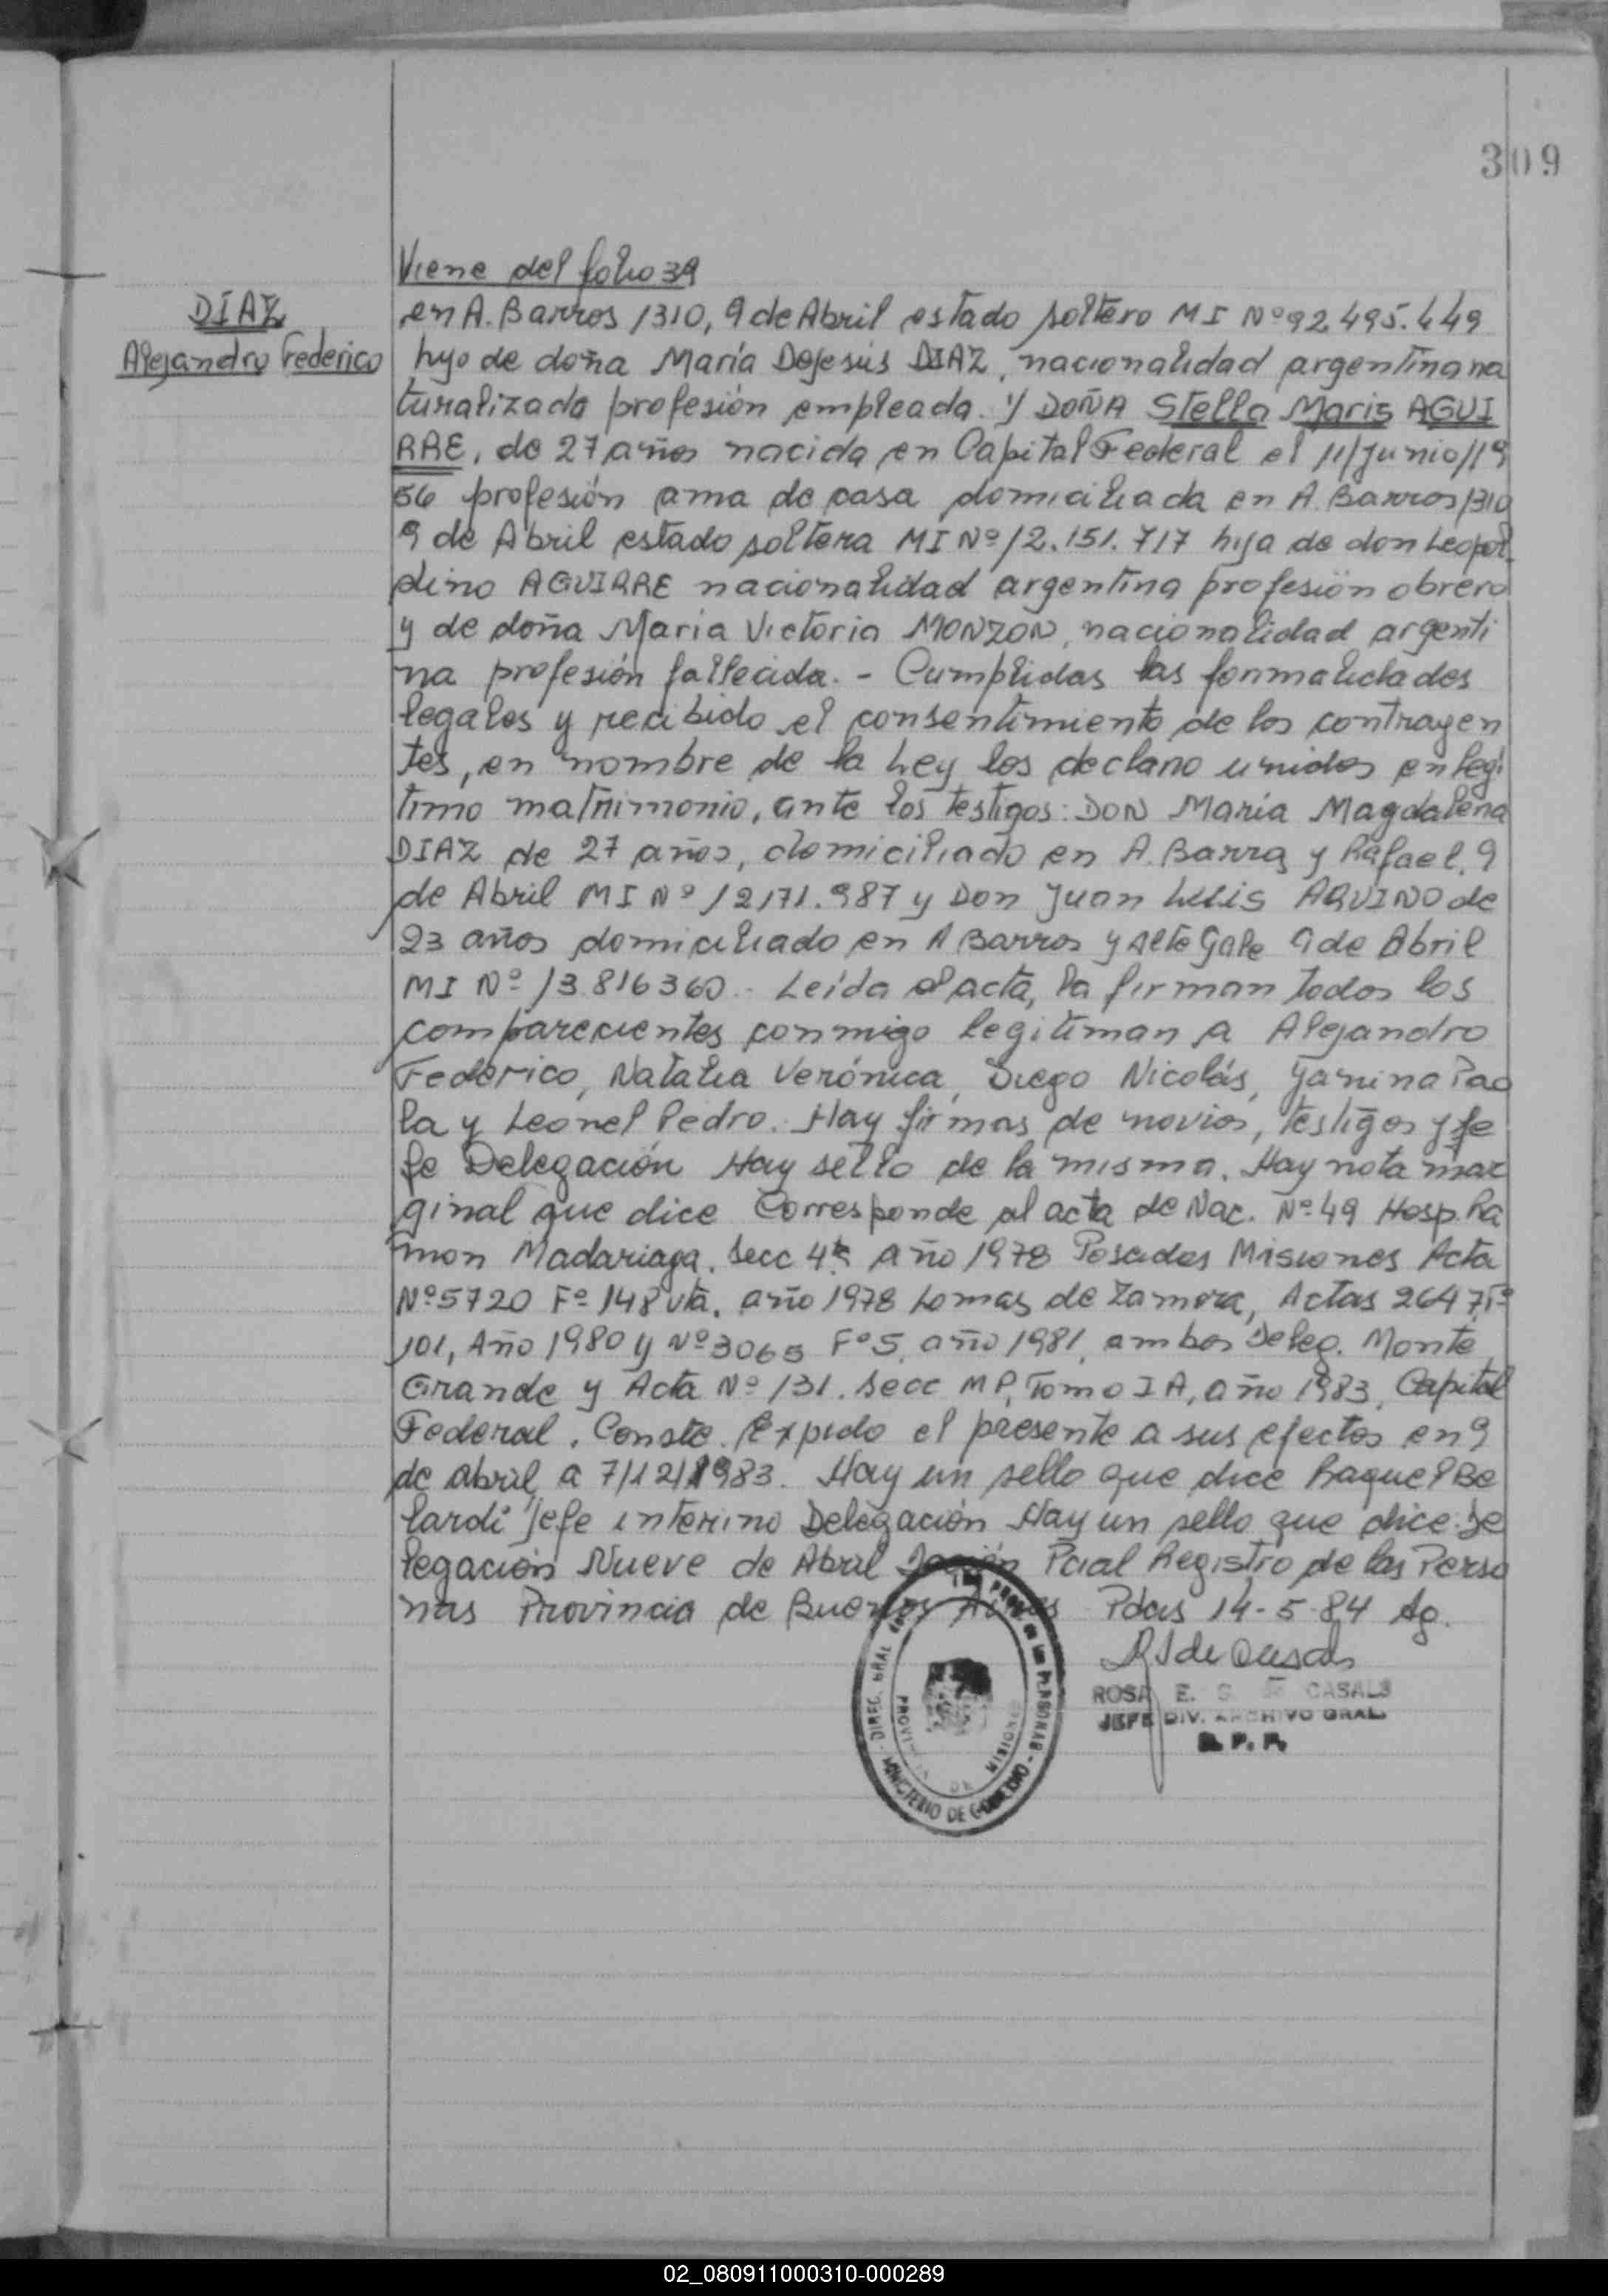 309
Viene del folio 39
DIAZ
Alejandro Federico
en A. Barros 1310, 9 de Abril estado soltero MI Nº 92.495.449
hijo de doña María DeJesús DIAZ, nacionalidad argentina na
turalizada profesión empleada. Y DOÑA Stella Maris AGUI
RRE, de 27 años nacida en Capital Federal el 11/Junio/19
56 profesión ama de casa domiciliada en A. Barros 1310
9 de Abril estado soltera MI Nº 12.151.717 hija de don Leopol
dino AGUIRRE nacionalidad argentina profesión obrero
y de doña María Victoria MONZON, nacionalidad argenti
na profesión fallecida. - Cumplidas las formalidades
legales y recibido el consentimiento de los contrayen
tes, en nombre de la Ley los declaro unidos en legí
timo matrimonio, ante los testigos: DON María Magdalena
DIAZ de 27 años, domiciliado en A. Barra y Rafael, 9
de Abril MI Nº 12171.987 y Don Juan Luis AQUINO de
23 años domiciliado en A Barros y Alte Gale 9 de Abril
MI Nº 13816360.- Leída el acta, la firman todos los
comparecientes conmigo legitiman a Alejandro
Federico, Natalia Verónica, Diego Nicolás, Yanina Pao
la y Leonel Pedro. Hay firmas de novios, testigos y Je
fe Delegación Hay sello de la misma. Hay nota mar
ginal que dice Corresponde al acta de Nac. Nº 49 Hosp. Ra
mon Madariaga. Secc 4ta Año 1978 Posadas Misiones Acta
Nº 5720 Fº 148 vta. año 1978 Lomas de Zamora, Actas 2647, Fº
101, Año 1980 y Nº 3065 Fº 5, año 1981, ambos Deleg. Monte
Grande y Acta Nº 131. Secc MP, Tomo I A, año 1983, Capital
Federal. Conste. Expido el presente a sus efectos en 9
de abril a 7/12/1983. Hay un sello que dice Raquel Be
lardi Jefe interino Delegación Hay un sello que dice: De
legación Nueve de Abril Pcial Registro de las Perso
nas Provincia de Buenos Aires Pdas 14-5-84 Ag.
ROSA E. CASALS
JEFE DIV. ARCHIVO GRAL.
R. P. P.
DIREC. GRAL de las PERSONAS - MINISTERIO DE GOBIERNO
PROVINCIA DE MISIONES
02_080911000310-000289